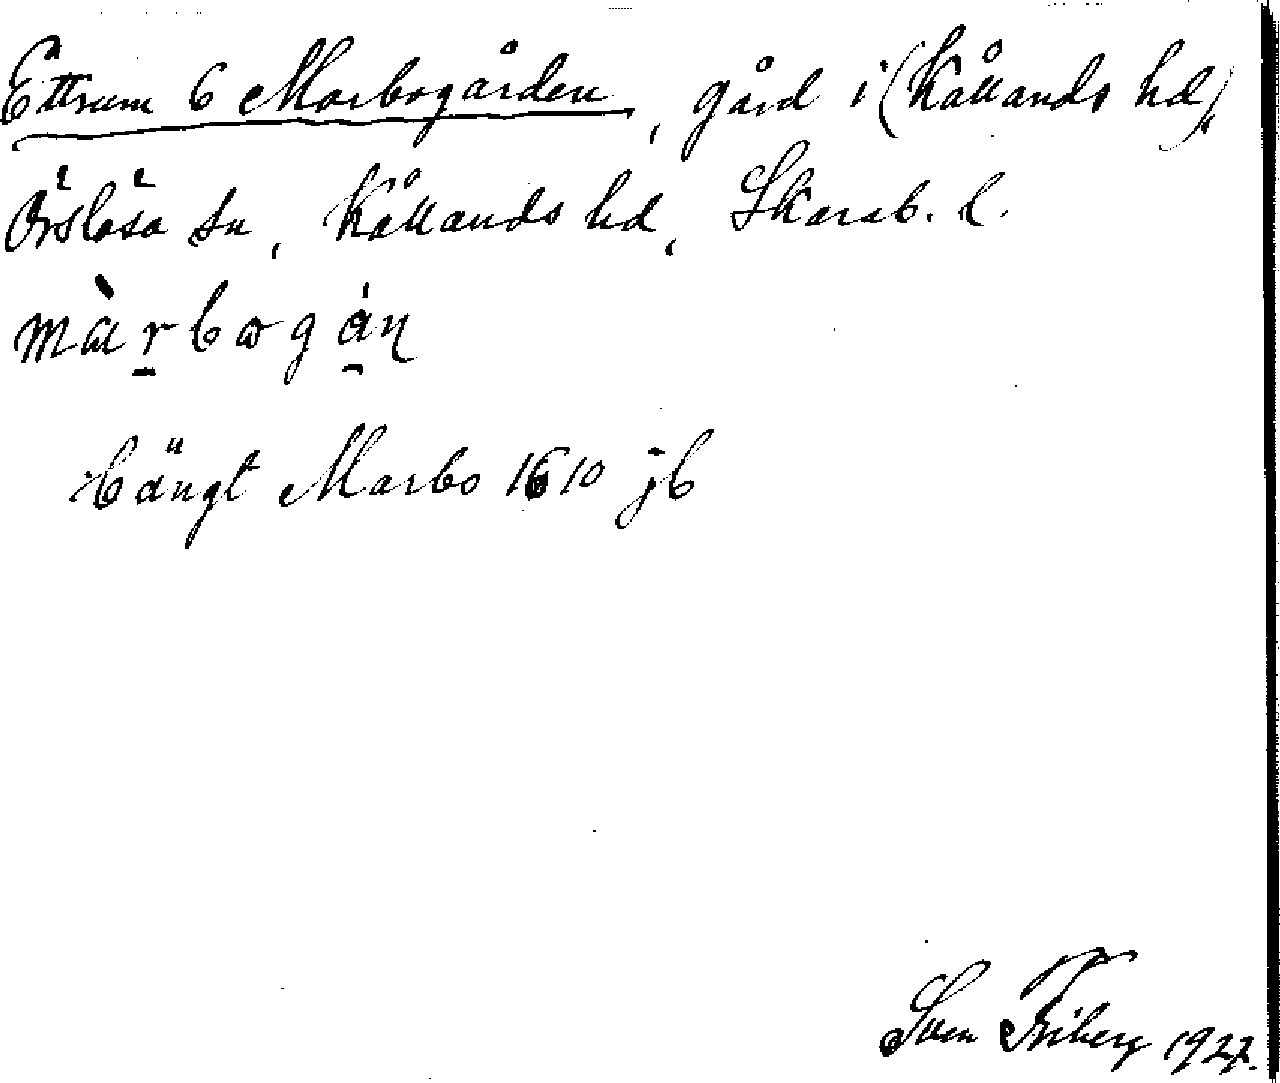 Ettrum 6 Marbogården, gård i (Kållands hd),
Örslösa sn, Kållands hd, Skarab. l.
bängt Marbo 1610 jb
Sven Friberg 1927.